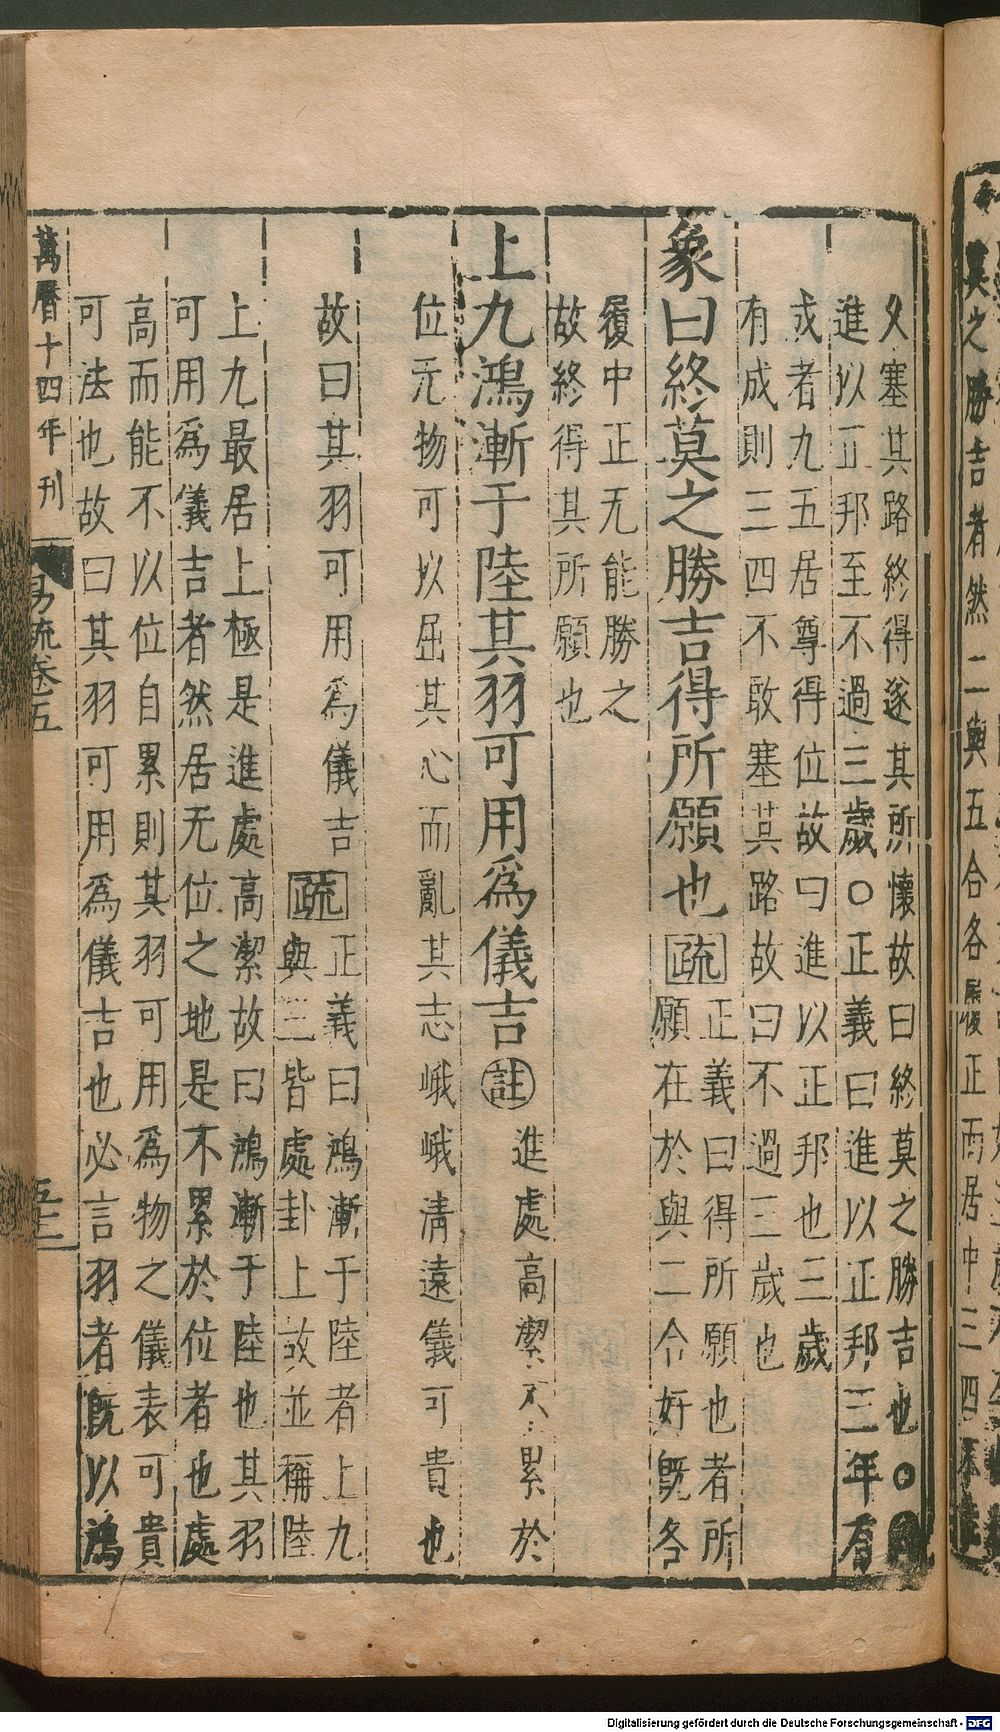 久塞其路終得遂其所懷故曰終莫之勝吉也〇
進以正邦至不過三歲〇正義曰進以正邦三年有
成者九五居尊得位故曰進以正邦也三歲
有成則三四不敢塞其路故曰不過三歲也
象曰終莫之勝吉得所願也疏
正義曰得所願也者所
願在於與二合好既各
履中正无能勝之
故終得其所願也
上九鴻漸于陸其羽可用爲儀吉註
進處高潔不累於
位无物可以屈其心而亂其志峨峨清遠儀可貴也
故曰其羽可用爲儀吉疏
正義曰鴻漸于陸者上九
與三皆處卦上故並稱陸
上九最居上極是進處高潔故曰鴻漸于陸也其羽
可用爲儀吉者然居无位之地是不累於位者也處
高而能不以位自累則其羽可用爲物之儀表可貴
可法也故曰其羽可用爲儀吉也必言羽者既以鴻
萬曆十四年刊
易疏卷五
莫之勝吉者然二與五合各履正而居中三四
Digitalisierung gefördert durch die Deutsche Forschungsgemeinschaft - DFG